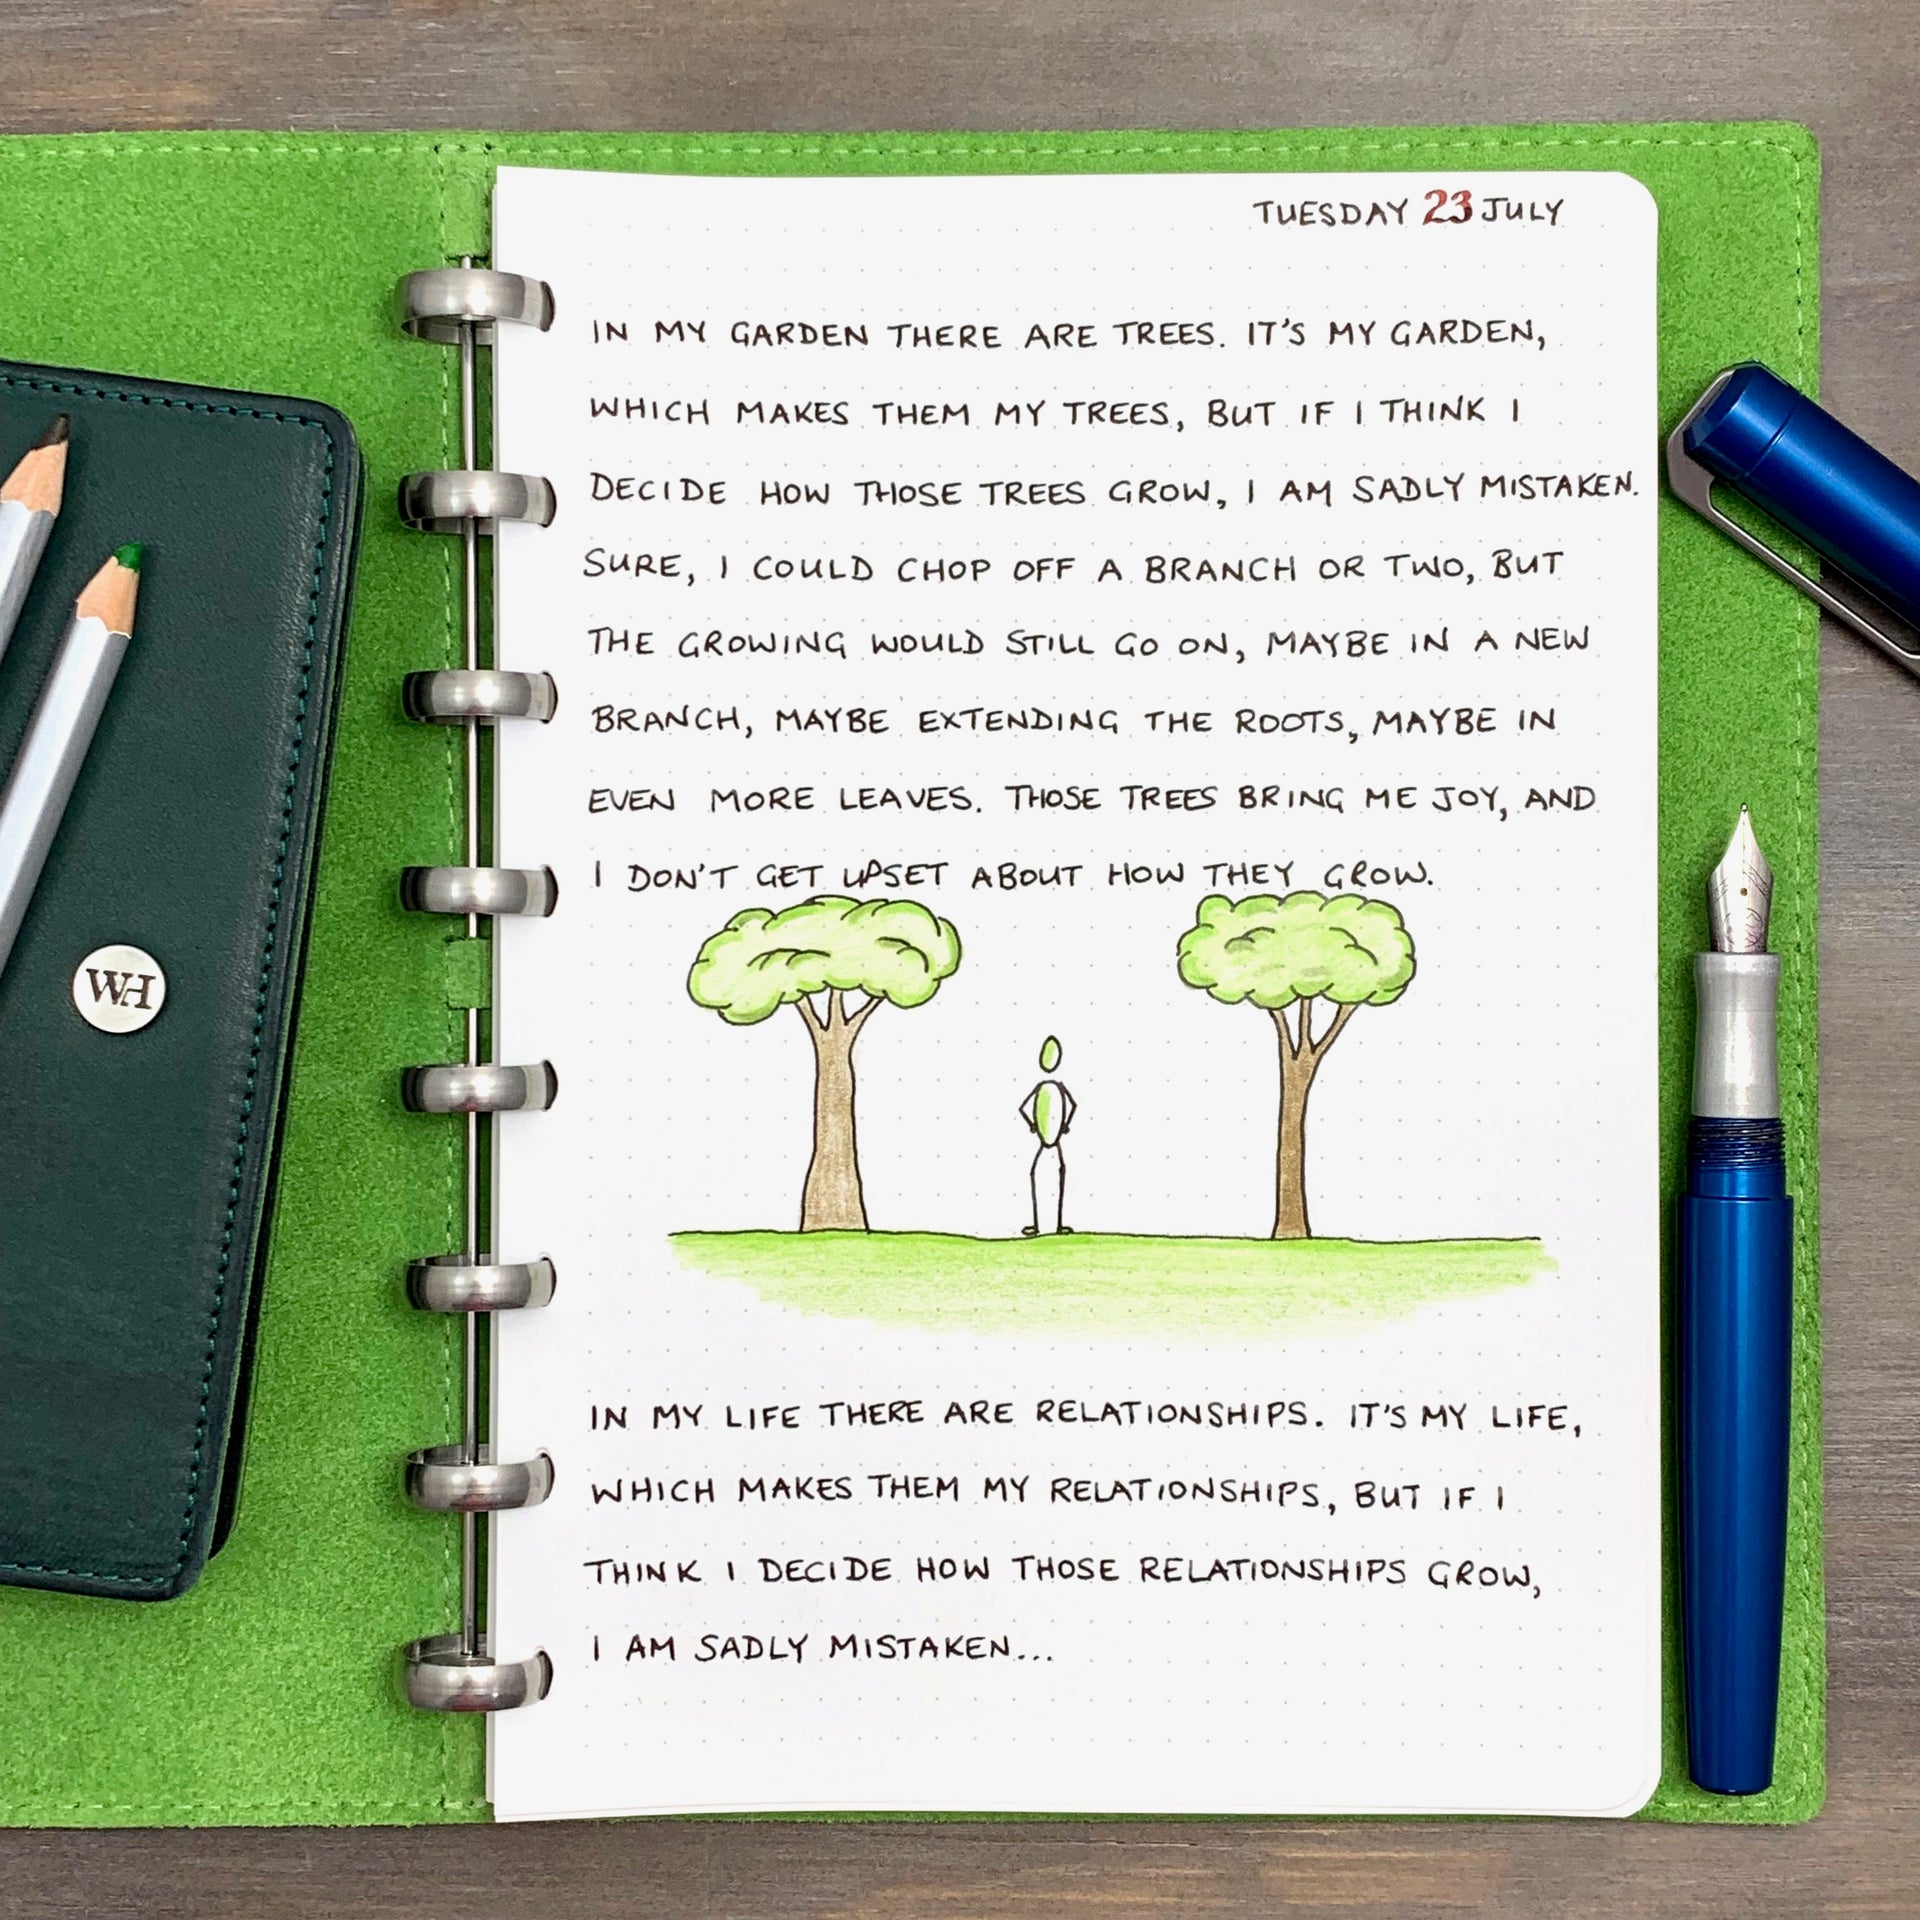 TUESDAY 23 JULY
IN MY GARDEN THERE ARE TREES. IT'S MY GARDEN,
WHICH MAKES THEM MY TREES, BUT IF I THINK I
DECIDE HOW THOSE TREES GROW, I AM SADLY MISTAKEN.
SURE, I COULD CHOP OFF A BRANCH OR TWO, BUT
THE GROWING WOULD STILL GO ON, MAYBE IN A NEW
BRANCH, MAYBE EXTENDING THE ROOTS, MAYBE IN
EVEN MORE LEAVES. THOSE TREES BRING ME JOY, AND
I DON'T GET UPSET ABOUT HOW THEY GROW.
WH
IN MY LIFE THERE ARE RELATIONSHIPS. IT'S MY LIFE,
WHICH MAKES THEM MY RELATIONSHIPS, BUT IF I
THINK I DECIDE HOW THOSE RELATIONSHIPS GROW,
I AM SADLY MISTAKEN...